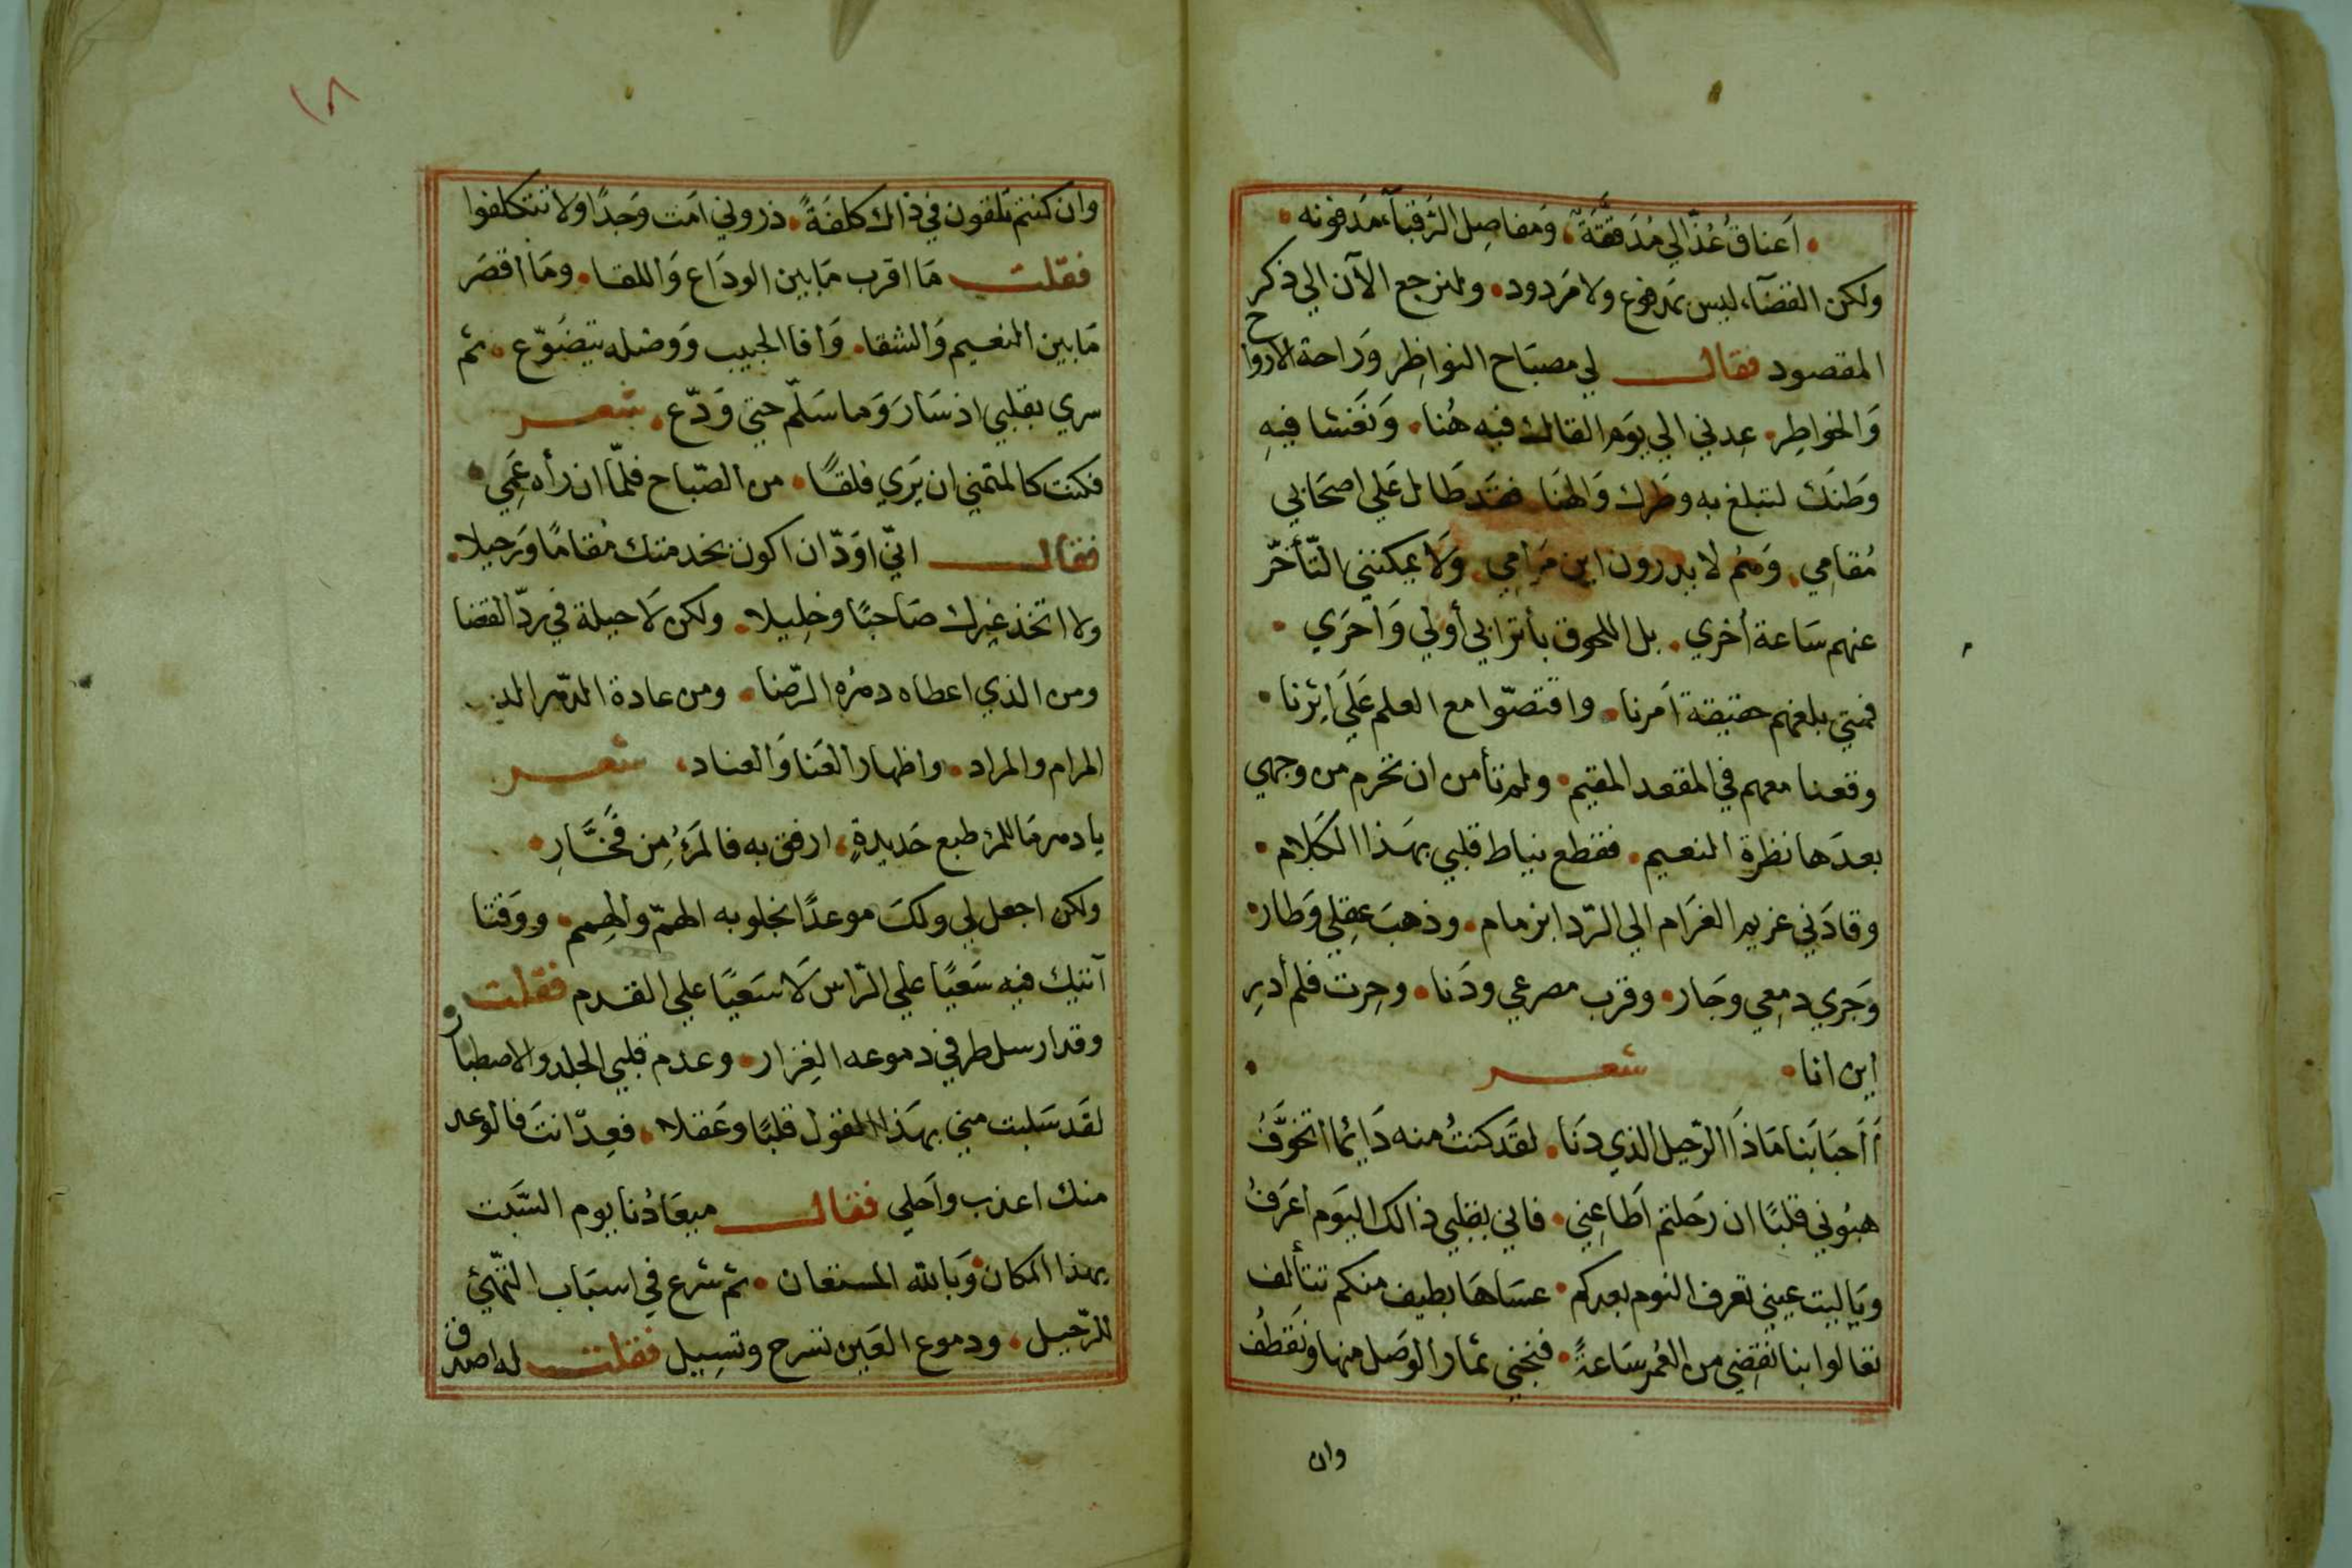 اَعناقُ عُذّالي مُدَقَّقَةٌ، وَمفاصِل الرُقبآءِ مَدفونه
ولكن القضآء ليس بمَدفوع ولا مَردود • ولنرجع الآن الي ذكر
المقصود فقال لي مصبَاح النواظِر وَراحة الارواح
وَالخواطِر • عِدني الي يوَم القاك فيه هُنا • وَنَغشا فيهِ
وَطنَك لتبلغ به وطَرك وَالهنَا فقَد طَال عَلي اصحَابي
مُقامِي، وَهُم لا يدرون اين مَرَامِي، وَلاَ يمكنني التّأخّر
عنهم سَاعة أخري • بل اللحوق بأترابي أولي وَأحرَي •
فمتي بلغهم حقيقة اَمرنا • واقتصّوا مع العلم عَلَي اِثرنا •
وقعنا معهم في المقعد المقيم • ولم تأمن ان تحرم من وجهي
بعدَها نظرة النعيم • فقطع نياط قلبي بهَذا الكَلام •
وقادَني غريم الغرَام الي الرّدا بزمام • وذهبَ عقِلي وَطار •
وَجَري دمعِي وجَار • وقرب مصرعي ودَنا • وحِرت فلم أدرِ
اين انا • شعر
أأحبَابَنا مَاذَا الرّحيل الذي دَنا • لقَد كنتُ منه دَائمًا اتخوَّفُ
هبُوني قلبًا ان رَحَلتم اَطَاعِني • فاني بقلبي ذالك اليَوم اعرَفُ
ويَاليت عيني تعرف النوم بعدكم • عسَاهَا بطيف منكم تتألف
تعالوا بنا نقضِي من العُمر سَاعةً • فنجني ثمار الوَصل منها ونَقطُف
وان
١٨
وان كنتم تلقون في ذالك كلفَةً • ذروني اَمت وَجدًا ولا تتكلفوا
فقلت مَا اقرب مَا بين الودَاع وَاللقا • ومَا اقصَر
مَا بين النعيم وَالشقا • وَافا الحبيب وَوصَله يتضَوّع • ثم
سري بقلبي اذ سَارَ وَما سَلّم حتي وَدّع • شعر
فكنت كالمتمني ان يَرَي فلقًا • من الصّباح فلمّا ان رأه عَمِي •
فقال انّي اوَدّ ان اكون بخدمتك مُقامًا وَرَحيلا •
ولا اتخذ غيرك صَاحبًا وخلِيلا • ولكن لاَ حيلة في ردّ القضا
ومن الذي اعطاه دهرُه الرّضا • ومن عادة الدّهر
المرام والمراد • واظهار العَنا وَالعناد، شعر
يا دهر مَا للمرْ طبع حَديدةٍ، ارفق به فالمَرءُ مِن فَخَّارِ •
ولكن اجعل لي ولكَ موعدًا نجلو به الهمّ والهِمم • ووَقتا
آتيك فيه سَعيًا علي الرّاس لاَ سَعيًا علي القدم فقلت
وقد ارسل طرفي دموعه الغِزار • وعدم قلبي الجلد والاصطبار
لقَد سَلبت مني بهَذا القول قلبًا وعَقلا • فعِدّ انتَ فالوعد
منك اعذب واَحلي فقال ميعَادُنا يوم السّبت
بهذا المكان وَبالله المستعان • ثم شرع في اسبَاب التهّيئ
للرّحيل • ودموع العَين تسرح وتسِيل فقلت له اصدق